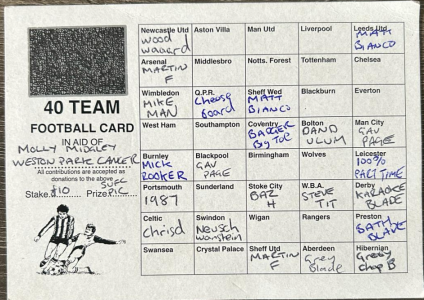 40 TEAM
FOOTBALL CARD
IN AID OF
MOLLY MIDGLEY
WESTON PARK CANCER
All contributions are accepted as
donations to the above
Stake £10 Prize
Newcastle Utd Aston Villa Man Utd Liverpool Leeds Utd
Wood
MATT
BIANCO
Arsenal Middlesbro Notts. Forest Tottenham Chelsea
MARTIN
F
Wimbledon Q.P.R. Sheff Wed Blackburn Everton
MIKE Cheese MATT
MAN board BIANCO
West Ham Southampton Coventry Bolton Man City
BADGER DAND GAV
ULUM PAGE
Burnley Blackpool Birmingham Wolves Leicester
MICK GAV 100%
ROOKER PAGE PART TIME
Portsmouth Sunderland Stoke City W.B.A. Derby
1987 BAZ STEVE KARAOKE
H TIT BLADE
Celtic Swindon Wigan Rangers Preston
Chrisd Neusch BATH
wanstein BLADE
Swansea Crystal Palace Sheff Utd Aberdeen Hibernian
MARTIN Grey Greasy
F Blade chop B